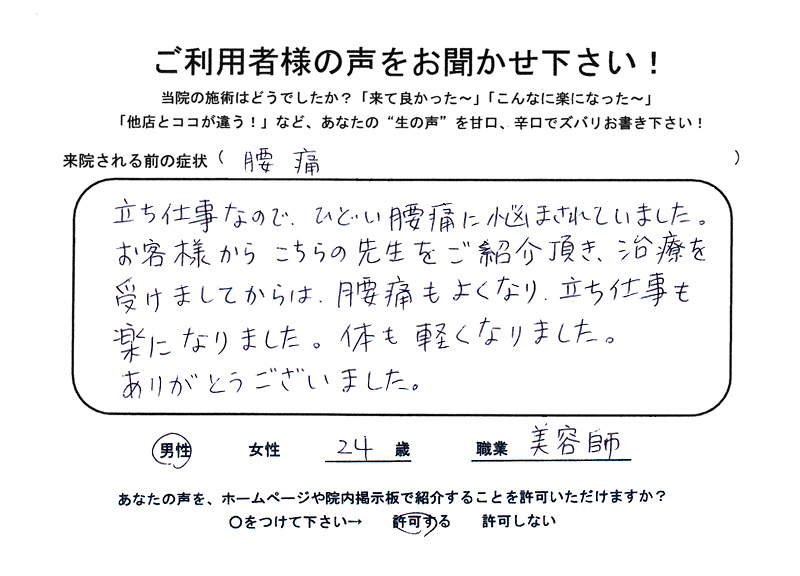 ご利用者様の声をお聞かせ下さい！
当院の施術はどうでしたか？「来て良かった〜」「こんなに楽になった〜」
「他店とココが違う！」など、あなたの“生の声”を甘口、辛口でズバリお書き下さい！
来院される前の症状（ 腰痛 ）
立ち仕事なので、ひどい腰痛に悩まされていました。
お客様からこちらの先生をご紹介頂き、治療を
受けましてからは、腰痛もよくなり、立ち仕事も
楽になりました。体も軽くなりました。
ありがとうございました。
男性 女性 24 歳 職業 美容師
あなたの声を、ホームページや院内掲示板で紹介することを許可いただけますか？
〇をつけて下さい→ 許可する 許可しない